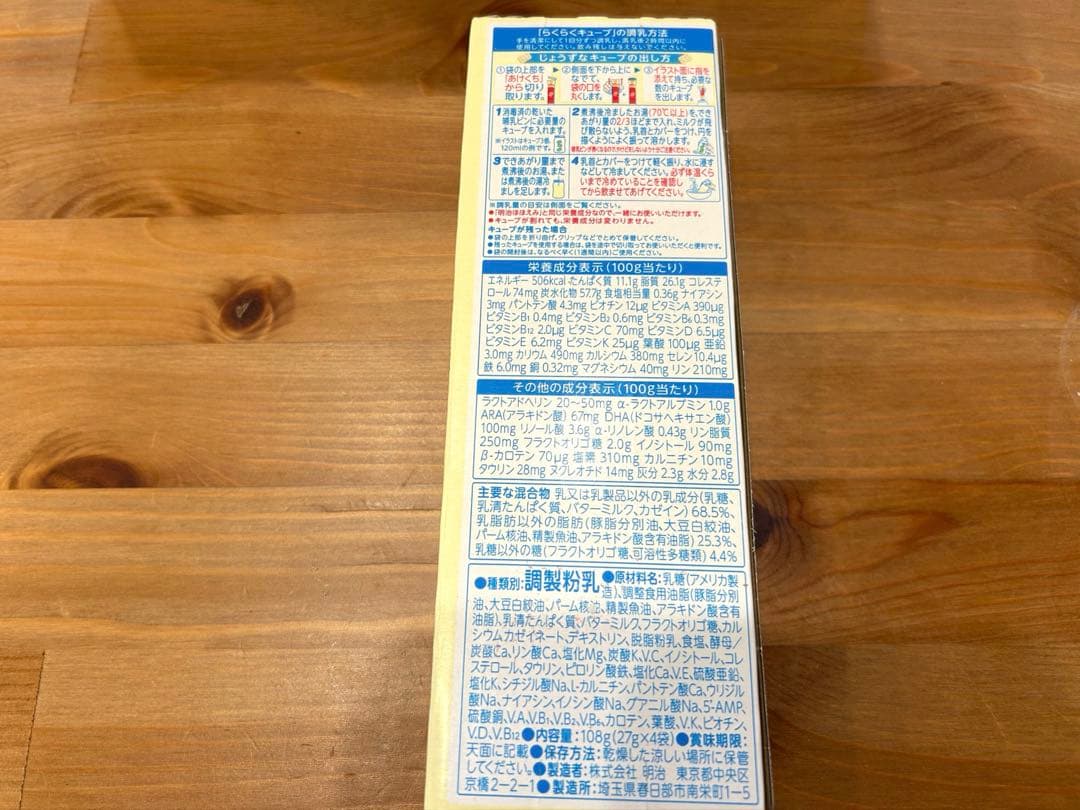 「らくらくキューブ」の調乳方法
手を清潔にして1回分ずつ調乳し、調乳後2時間以内に
使用してください。飲み残しは与えないでください。
じょうずなキューブの出し方
①袋の上部を
「あけくち」
から切り
取ります。
②側面を下から上に
なでて、
袋の口を
丸くします。
③イラスト面に指を
添えて持ち、必要な
数のキューブ
を出します。
1 消毒済の乾いた
哺乳ビンに必要量の
キューブを入れます。
※イラストはキューブ3個、
120mlの例です。
2 煮沸後冷ましたお湯(70℃以上)を、でき
あがり量の2/3ほどまで入れ、ミルクが飛
び散らないよう、乳首とカバーをつけ、円を
描くようによく振って溶かします。
3 できあがり量まで
煮沸後のお湯、また
は煮沸後の湯冷
ましを足します。
4 乳首とカバーをつけて軽く振り、水に浸す
などして冷ましてください。必ず体温くら
いまで冷めていることを確認し
てから飲ませてあげてください。
※調乳量の目安は側面をご覧ください。
●「明治ほほえみ」と同じ栄養成分なので、一緒にお使いいただけます。
●キューブが割れても、栄養成分は変わりません。
キューブが残った場合
●袋の上部を折り曲げ、クリップなどでとめて保管してください。
●残ったキューブを使用する場合は、袋を途中で切り取ってお使いいただくと便利です。
●袋の開封後は、なるべく早く(1週間以内)ご使用ください。
栄養成分表示(100g当たり)
エネルギー 506kcal たんぱく質 11.1g 脂質 26.1g コレステ
ロール 74mg 炭水化物 57.7g 食塩相当量 0.36g ナイアシン
3mg パントテン酸 4.3mg ビオチン 12μg ビタミンA 390μg
ビタミンB₁ 0.4mg ビタミンB₂ 0.6mg ビタミンB₆ 0.3mg
ビタミンB₁₂ 2.0μg ビタミンC 70mg ビタミンD 6.5μg
ビタミンE 6.2mg ビタミンK 25μg 葉酸 100μg 亜鉛
3.0mg カリウム 490mg カルシウム 380mg セレン 10.4μg
鉄 6.0mg 銅 0.32mg マグネシウム 40mg リン 210mg
その他の成分表示(100g当たり)
ラクトアドヘリン 20〜50mg α-ラクトアルブミン 1.0g
ARA(アラキドン酸) 67mg DHA(ドコサヘキサエン酸)
100mg リノール酸 3.6g α-リノレン酸 0.43g リン脂質
250mg フラクトオリゴ糖 2.0g イノシトール 90mg
β-カロテン 70μg 塩素 310mg カルニチン 10mg
タウリン 28mg ヌクレオチド 14mg 灰分 2.3g 水分 2.8g
主要な混合物 乳又は乳製品以外の乳成分(乳糖、
乳清たんぱく質、バターミルク、カゼイン) 68.5%、
乳脂肪以外の脂肪(豚脂分別油、大豆白絞油、
パーム核油、精製魚油、アラキドン酸含有油脂) 25.3%、
乳糖以外の糖(フラクトオリゴ糖、可溶性多糖類) 4.4%
●種類別:調製粉乳 ●原材料名:乳糖(アメリカ製
造)、調整食用油脂(豚脂分別
油、大豆白絞油、パーム核油、精製魚油、アラキドン酸含有
油脂)、乳清たんぱく質、バターミルク、フラクトオリゴ糖、カル
シウムカゼイネート、デキストリン、脱脂粉乳、食塩、酵母／
炭酸Ca、リン酸Ca、塩化Mg、炭酸K、V.C、イノシトール、コレ
ステロール、タウリン、ピロリン酸鉄、塩化Ca、V.E、硫酸亜鉛、
塩化K、シチジル酸Na、L-カルニチン、パントテン酸Ca、ウリジル
酸Na、ナイアシン、イノシン酸Na、グアニル酸Na、5'-AMP、
硫酸銅、V.A、V.B₁、V.B₂、V.B₆、カロテン、葉酸、V.K、ビオチン、
V.D、V.B₁₂ ●内容量:108g(27g×4袋) ●賞味期限:
天面に記載 ●保存方法:乾燥した涼しい場所に保管
してください。●製造者:株式会社 明治 東京都中央区
京橋2-2-1 ●製造所:埼玉県春日部市南栄町1-5